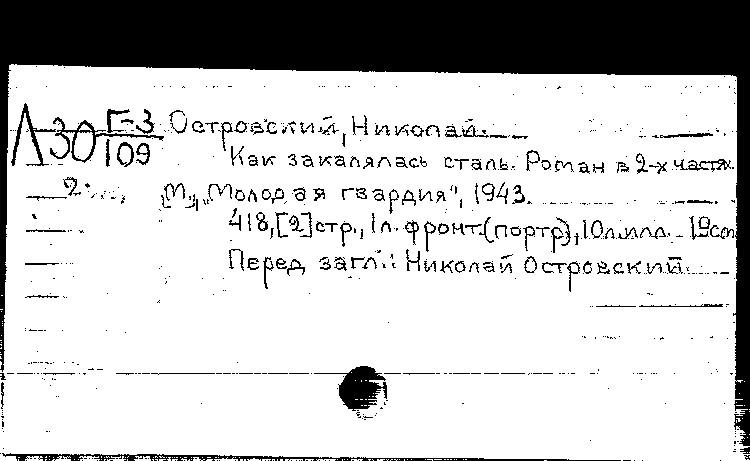 Л30 Г-3/109 Островский, Николай.
Как закалялась сталь. Роман в 2-х частях.
[М.], „Молодая гвардия", 1943.
418,[2]стр., 1л. фронт.(портр), 10л.илл. 19см
Перед загл.: Николай Островский.